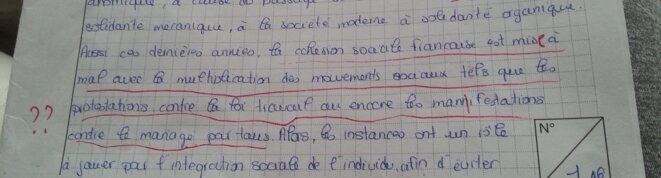 anomique, à cause du passage
solidarité mécanique, à la société moderne à solidarité organique.
Aussi ces dernières années, la cohésion sociale française est mise à
mal avec la multiplication des mouvements sociaux tels que les
?? protestations contre la loi travail ou encore les manifestations
contre le mariage par tous. Alors, les instances ont un rôle
à jouer pour l'intégration sociale de l'individu, afin d'éviter
N°